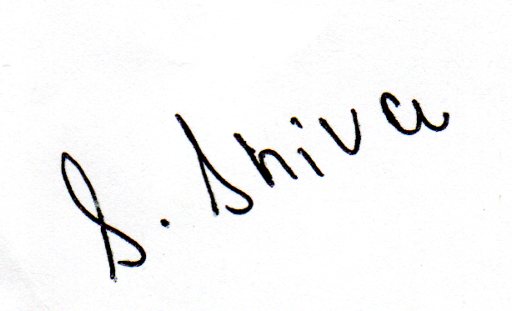 S. Shiva